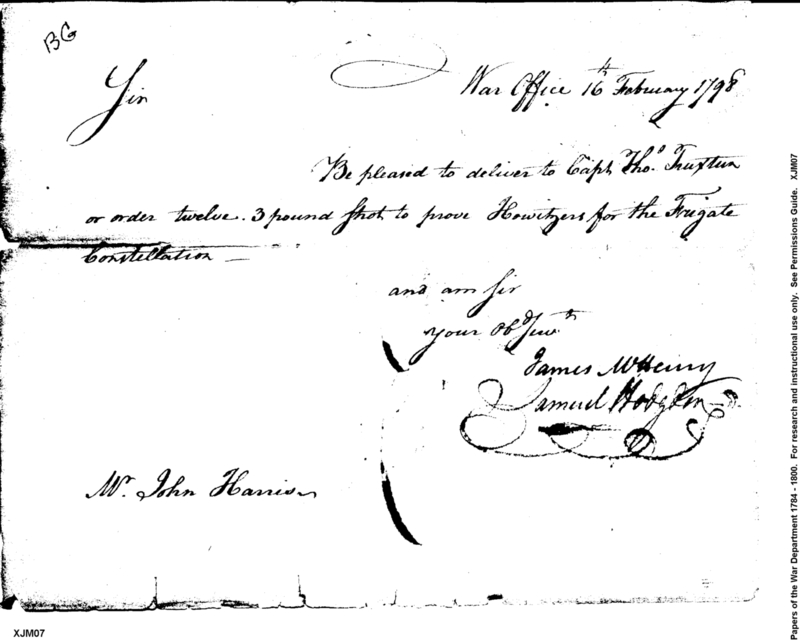 BG
War Office 16th February 1798
Sir
Be pleased to deliver to Capt Thos. Truxtun
or order twelve. 3 pound shot to prove Howitzers for the Frigate
Constellation
and am Sir
your Obd Servt
James McHenry
Samuel Hodgdon
Mr. John Harris
XJM07
Papers of the War Department 1784 - 1800. For research and instructional use only. See Permissions Guide. XJM07